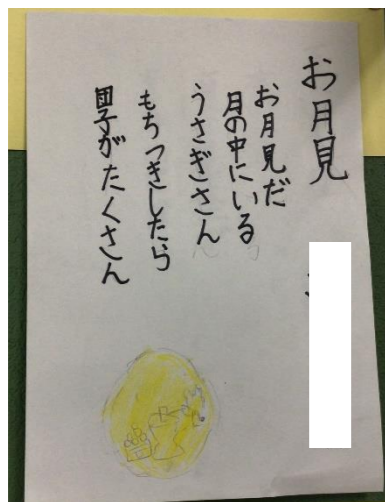 お月見
お月見だ
月の中にいる
うさぎさん
もちつきしたら
団子がたくさん